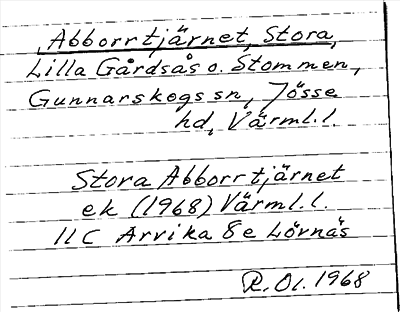 Abborrtjärnet, Stora,
Lilla Gårdsås o. Stommen,
Gunnarskogs sn, Jösse
hd, Värml. l.
Stora Abborrtjärnet
ek (1968) Värml. l.
11 C Arvika 8 e Lövnäs
R. Ol. 1968